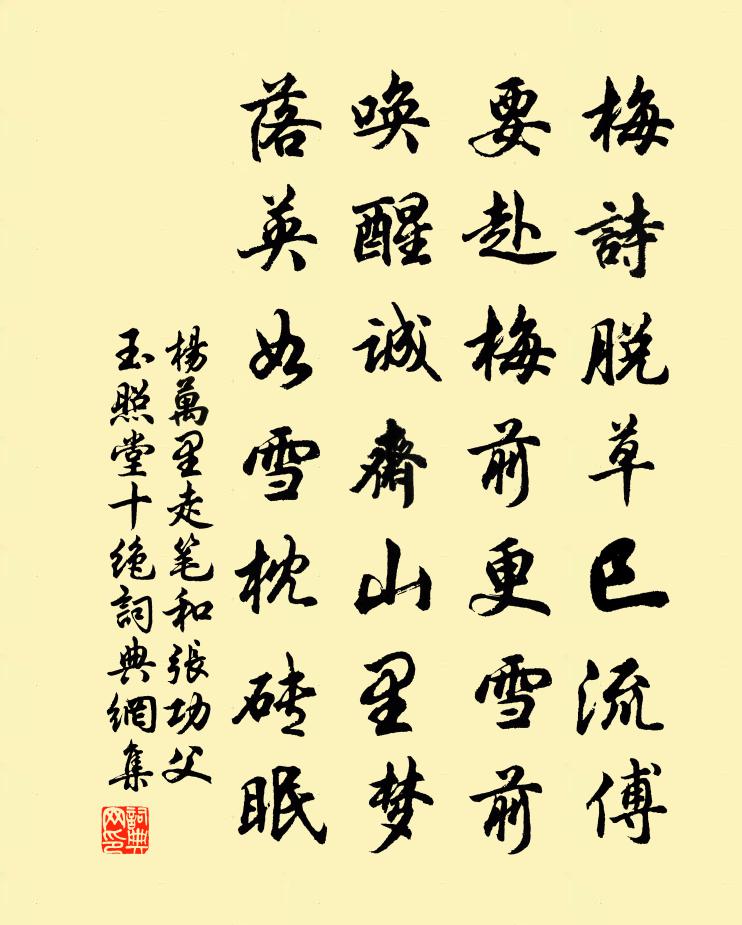 梅詩脫草已流傅
要赴梅前更雪前
喚醒誠齋山里梦
落英如雪枕砖眠
楊萬里走笔和張功父
玉照堂十绝詞典網集
詞典网印